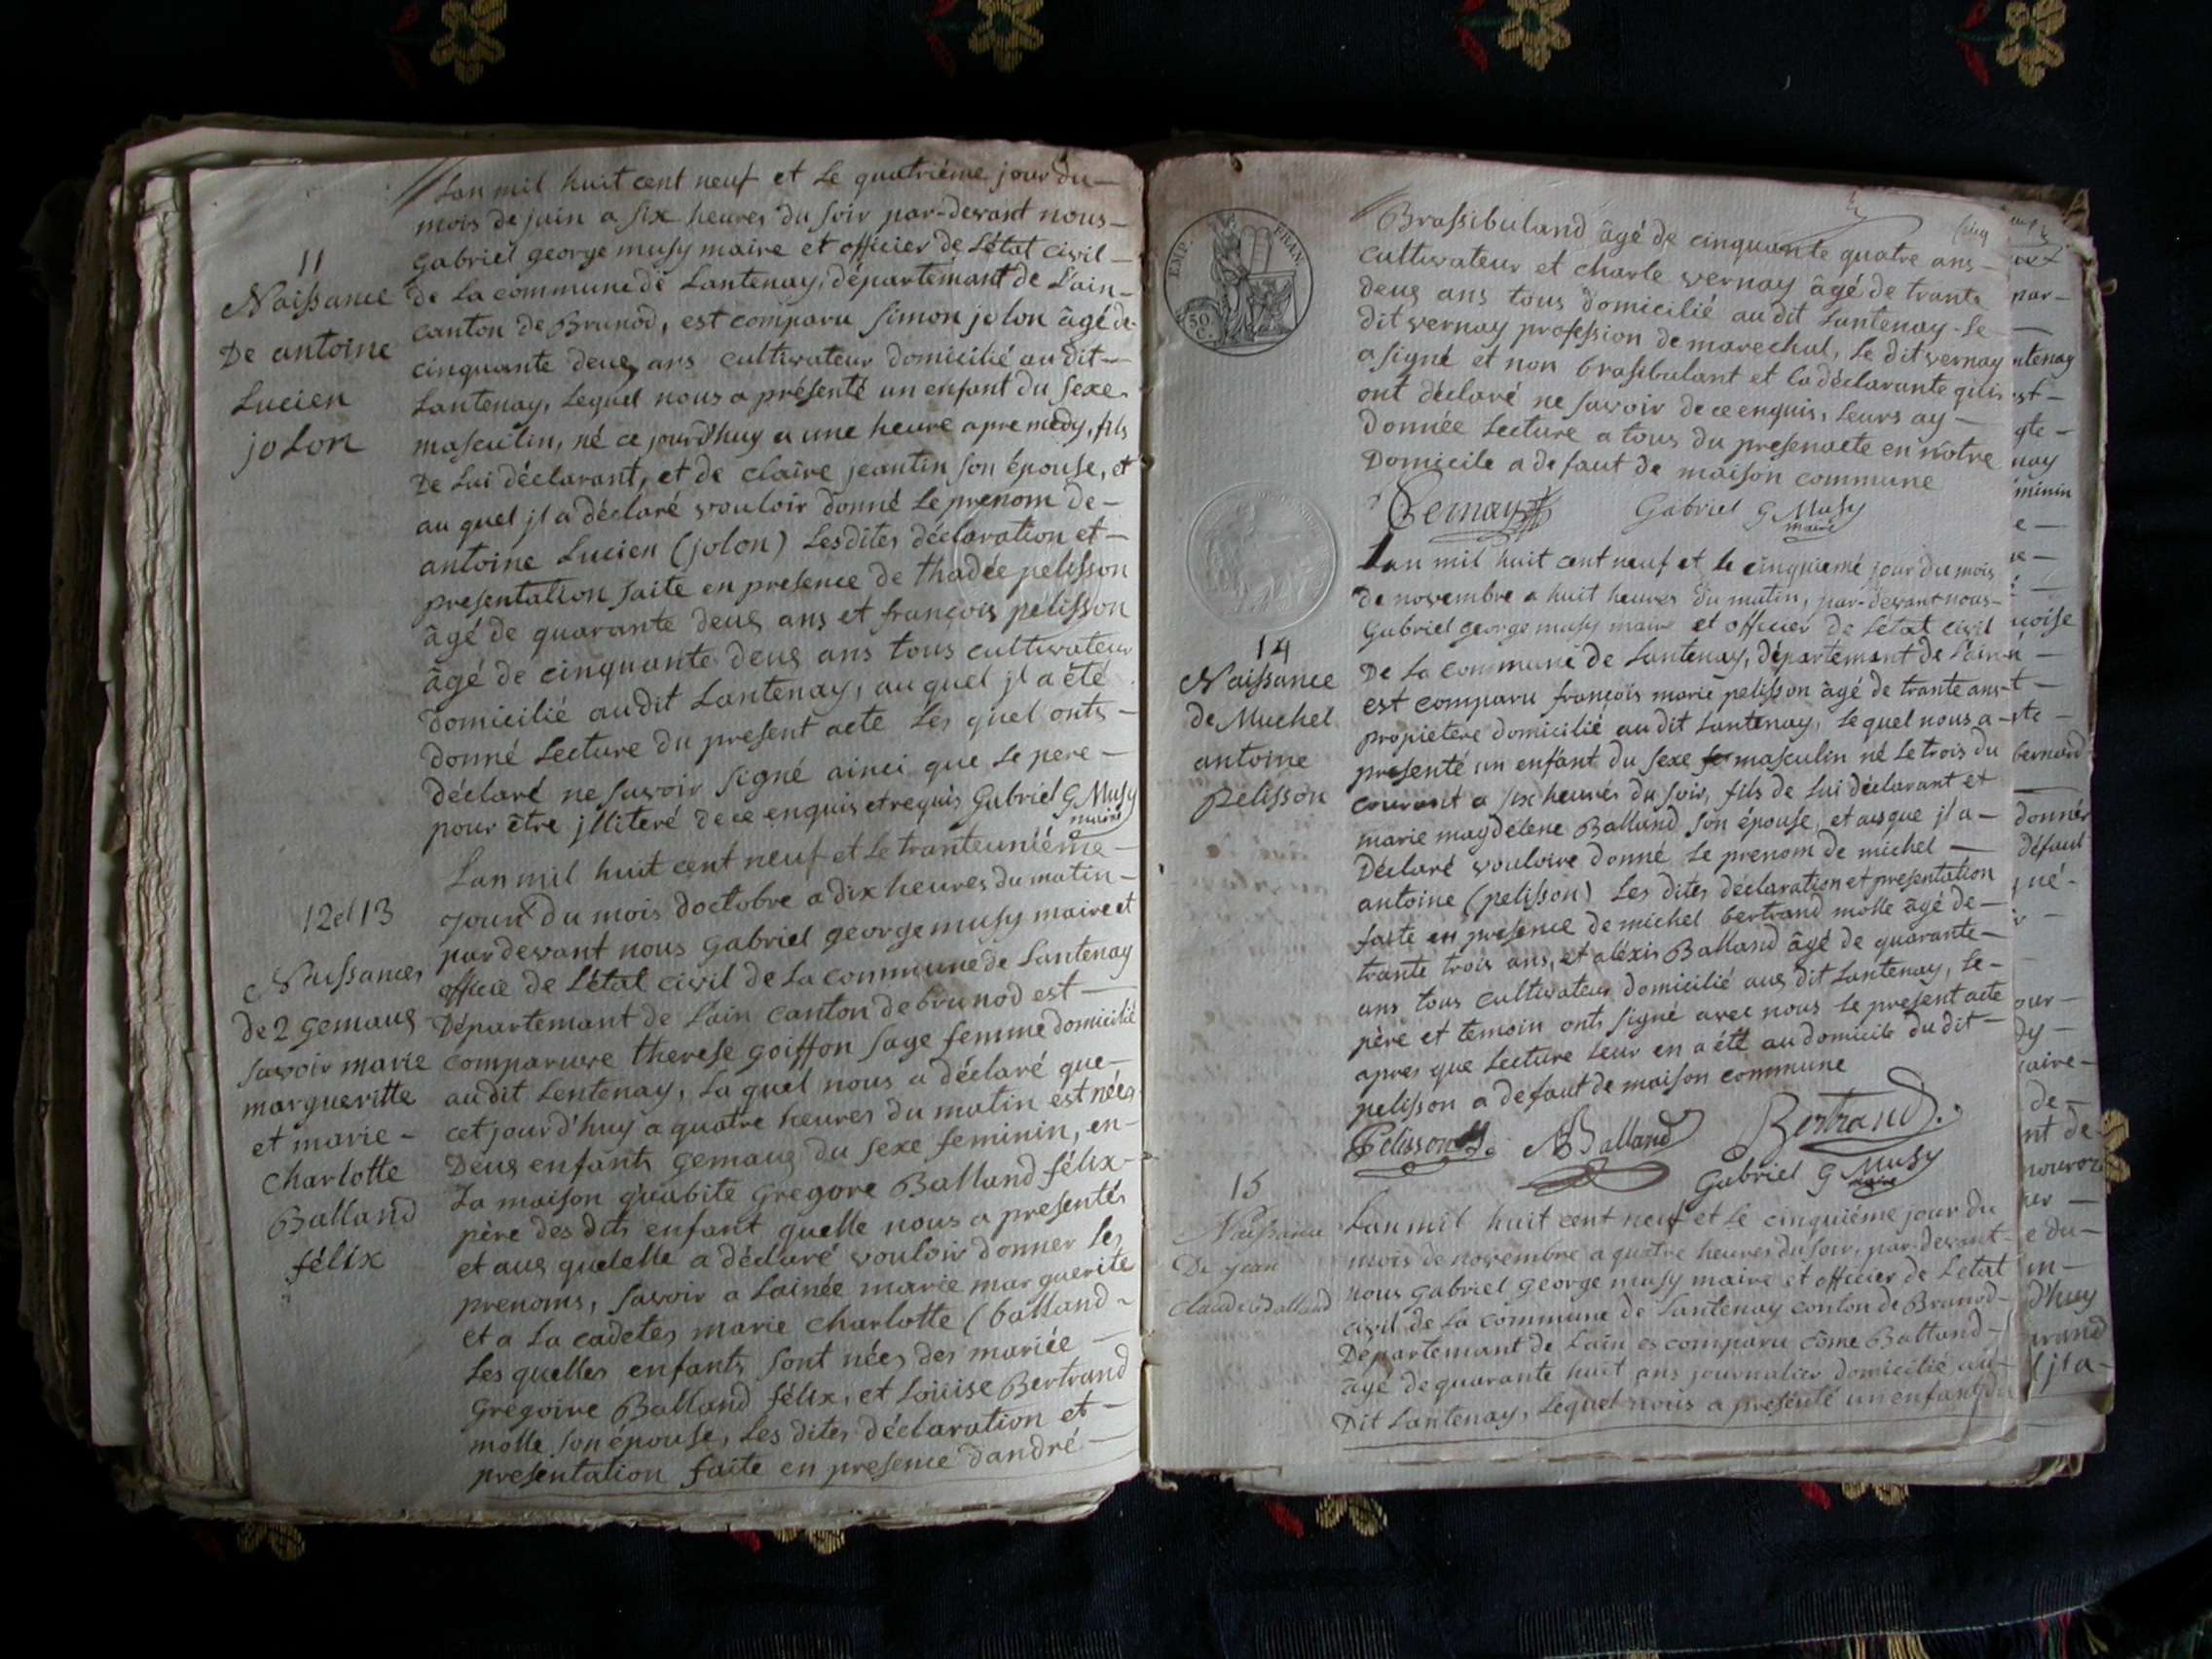 11
Naissance
De antoine
Lucien
jolon
Lan mil huit cent neuf et Le quatriéme jour du—
mois de juin a six heures du soir par-devant nous—
Gabriel george musy maire et officier de L'état civil—
de La commune de Lantenay, département de L'ain—
canton de Brunod, est comparu Simon jolon âgé de
cinquante deux ans cultivateur domicilié au dit—
Lantenay, Lequel nous a présenté un enfant du sexe
masculin, né ce jourd'huy a une heure apre medy, fils
De Lui déclarant, et de claire jeantin son épouse, et
au quel jl a déclaré vouloir donné Le prenom de—
antoine Lucien (jolon) Lesdites déclaration et—
presentation faite en presence de thadée pelisson
âgé de quarante deus ans et françois pelisson
âgé de cinquante deus ans tous cultivateur
domicilié audit Lantenay, au quel jl a été
donné Lecture du present acte Les quel onts—
déclaré ne savoir signé ainci que Le pere—
pour être jlliteré de ce enquis et requis Gabriel G Musy
maire
12 et 13
Naissances
de 2 Gemaus
savoir marie
margueritte
et marie-
Charlotte
Balland
félix
Lan mil huit cent neuf et Le tranteuniéme—
jour du mois doctobre a dix heures du matin—
par devant nous Gabriel george musy maire et
office de L'état civil de La commune de Lantenay
Département de Lain canton de brunod est—
comparuve therese goiffon sage femme domicilié
audit Lentenay, La quel nous a déclaré que—
cet jourd'huy a quatre heures du matin est nées
Deus enfants gemaus du sexe feminin, en—
La maison qu'abite Gregore Balland félix—
père des dits enfant quelle nous a presentés
et aus quelelle a déclaré vouloir donner Les
prenoms, savoir a Lainée marie marguerite
et a La cadetes marie charlotte (balland—
Les quelles enfants sont nées des mariée—
Gregoire Balland félix, et Loüise Bertrand
molle son épouse, Les dites déclaration et—
presentation faite en presence dandré—
EMP. FRAN.
50
C.
Brassibuland âgé de cinquante quatre ans—
cultivateur et charle vernay âgé de trante
deus ans tous domicilié au dit Lantenay Le
dit vernay profession de marechal, Le dit vernay
a signé et non brasibulant et la déclarante quis
ont déclaré ne savoir de ce enquis, Leurs ay—
donnée Lecture a tous du presenacte en nôtre
Domicile a defaut de maison commune
Vernay Gabriel G Musy
maire
14
Naissance
de Muchel
antoine
pelisson
Lan mil huit cent neuf et le cinquiemé jour du mois
de novembre a huit heures du matin, par-devant nous—
Gabriel george musy maire et officier de Létat civil
De La commune de Lantenay, département de L'ain
est comparu françois marie pelisson âgé de trante ans
propietere domicilié au dit Lantenay, Lequel nous a—
presenté un enfant du sexe masculin né Le trois du
courant a six heures du soir, fils de Lui déclarant et
marie magdelene Balland son épouse, et auque jl a—
Déclaré vouloire donné Le prenom de michel—
antoine (pelisson) Les dites déclaration et presentation
faite en presence de michel bertrand molle âgé de—
trante trois ans, et aléxis Balland âgé de quarante—
ans tous cultivateur domicilié aus dit Lantenay, Le—
père et temoin onts signé avec nous Le present acte
apres que Lecture Leur en a été au domicile du dit—
pelisson a defaut de maison commune
Pelisson ABalland Bertrand.
Gabriel G Musy
maire
15
Naissance
De jean
Claude Balland
Lan mil huit cent neuf et Le cinquiéme jour du
mois de novembre a quatre heures du soir, par-devant—
nous Gabriel george musy maire et officier de Létat
civil de La commune de Lantenay conton de Brunod—
Departemant de Lain es comparu côme Balland—
âgé de quarante huit ans journalier domicilié au—
Dit Lantenay, Lequel nous a presenté un enfant du